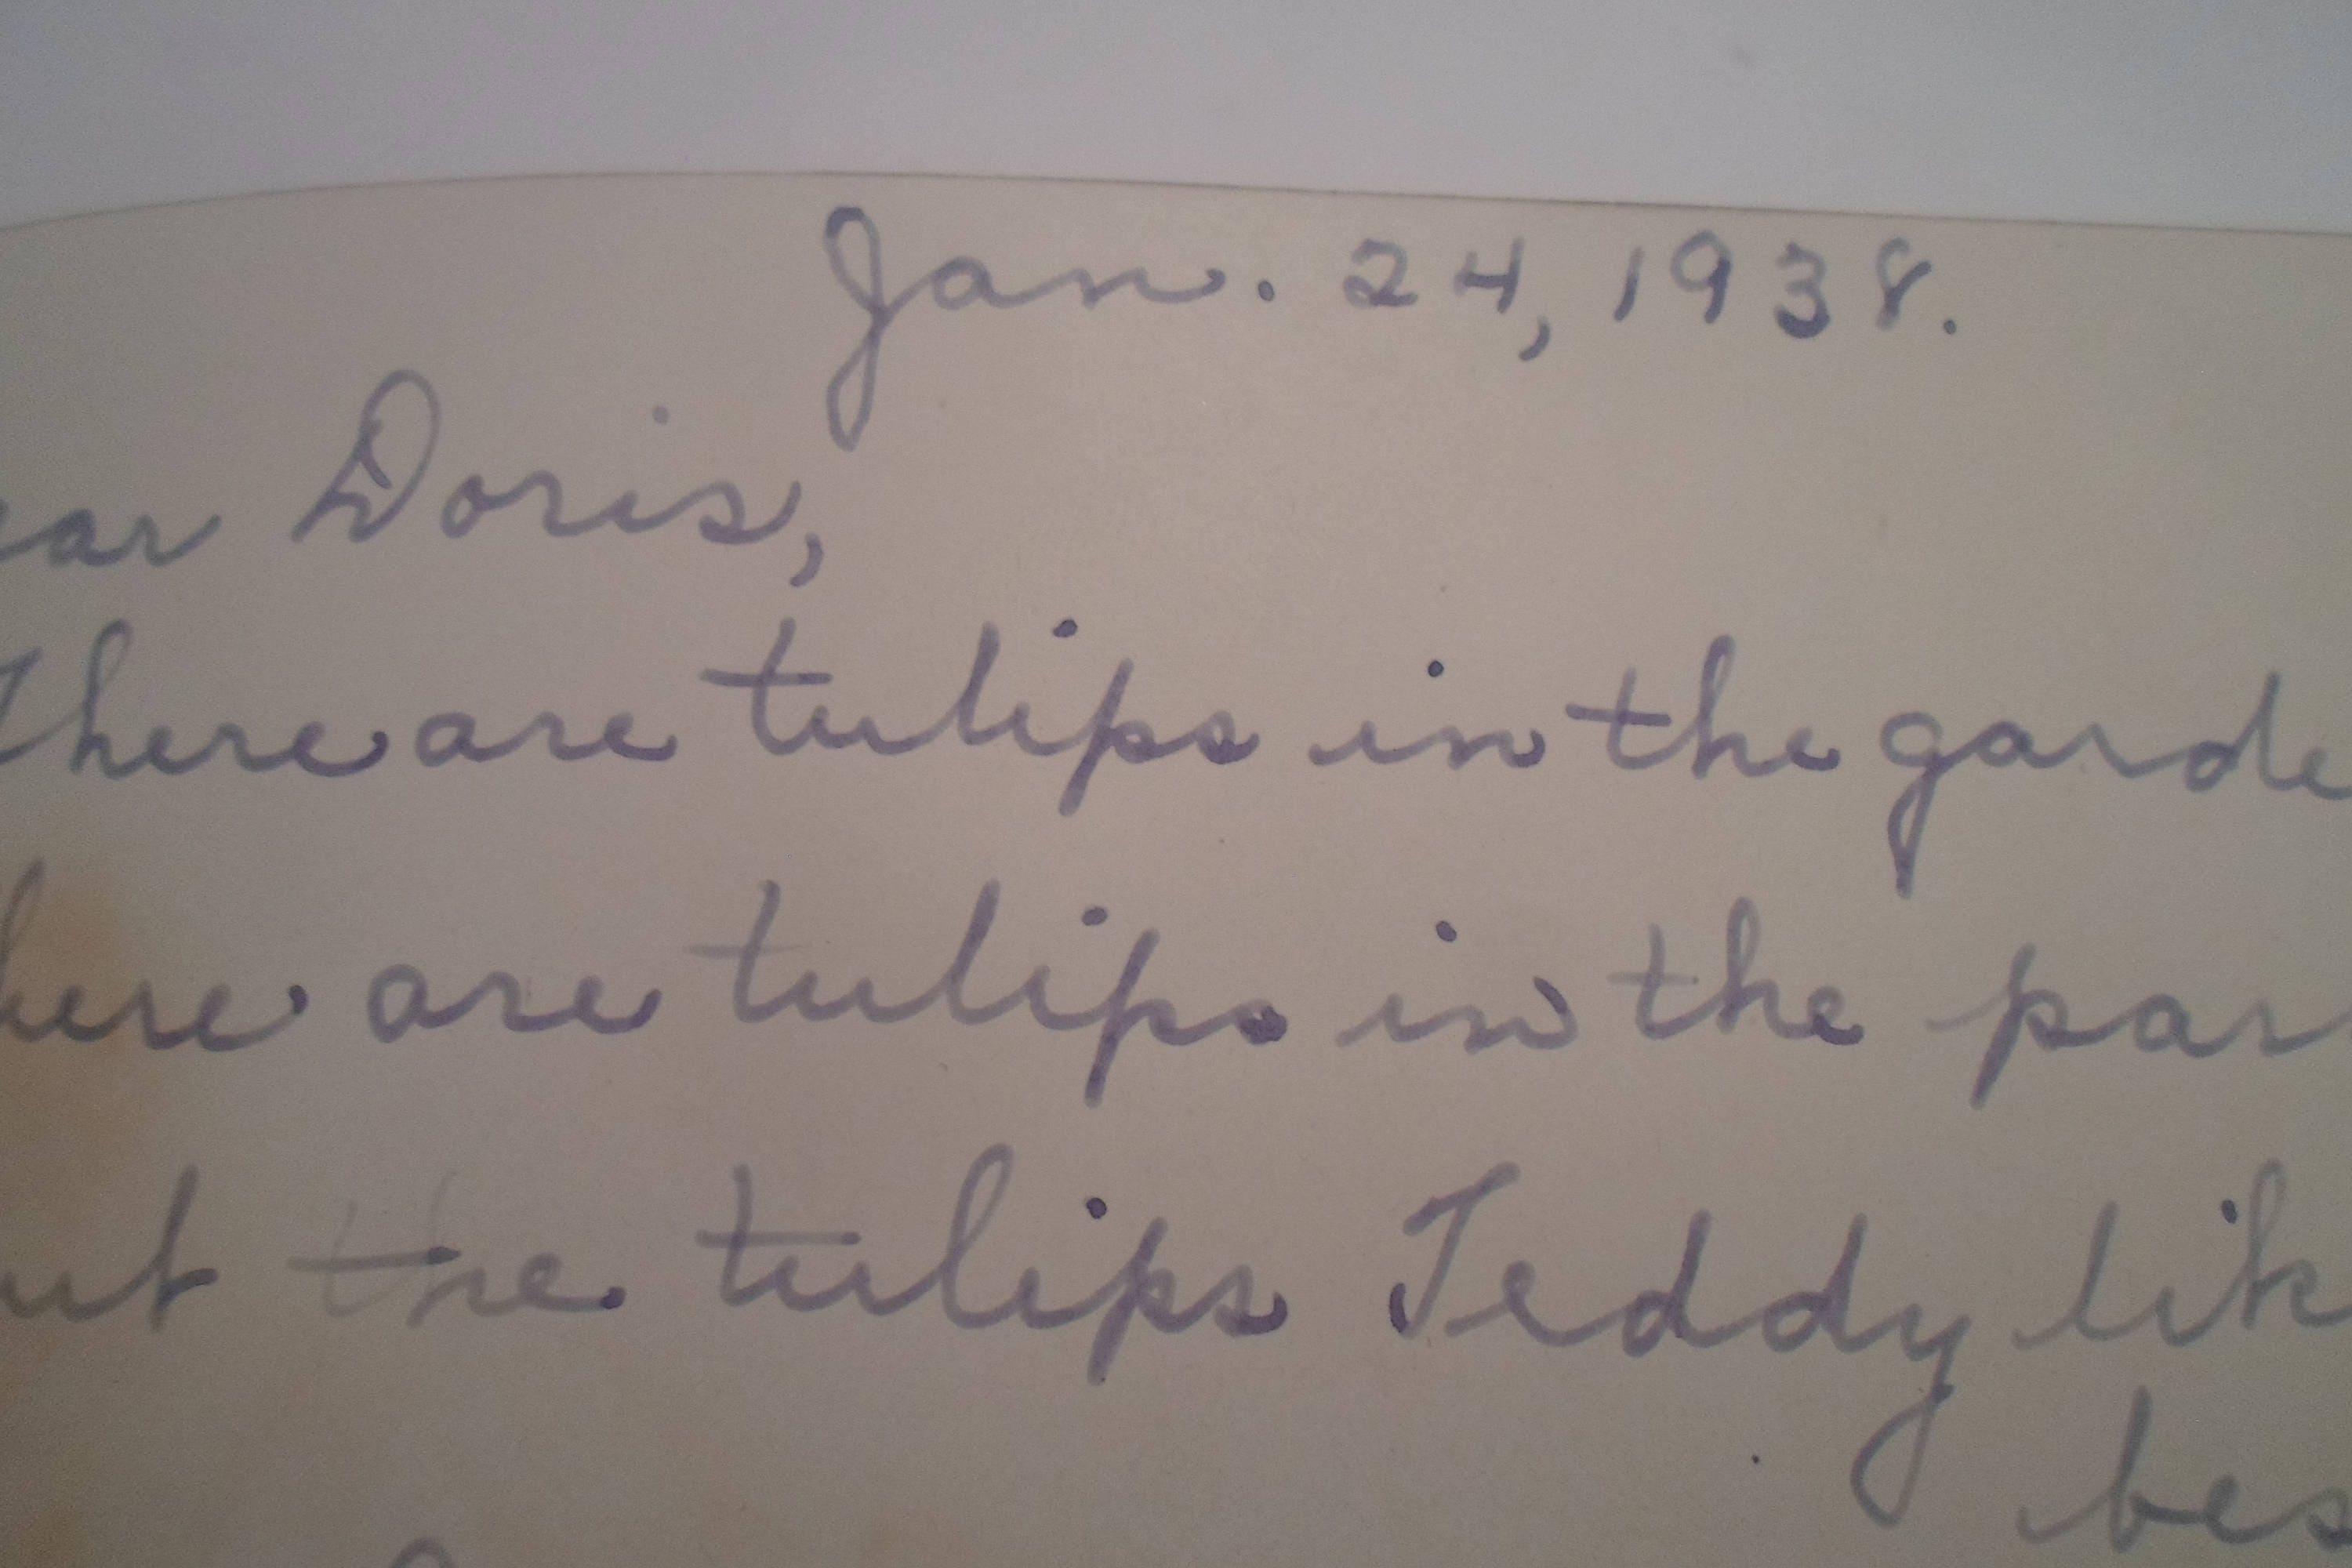 Jan. 24, 1938.
ear Doris,
There are tulips in the garde
here are tulips in the par
ut the tulips Teddy lik
bes